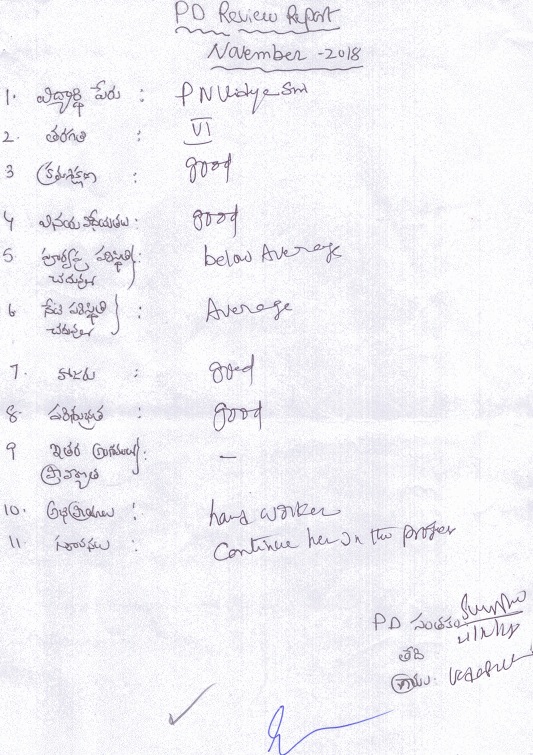 PD Review Report
November - 2018
1. విద్యార్థి పేరు : P N Vidya Sri
2. తరగతి : VI
3 క్రమశిక్షణ : good
4 వినయ విధేయతలు : good
5 పూర్వపు పరిస్థితి చదువు : below Average
6 నేటి పరిస్థితి చదువు : Average
7. హాజరు : good
8. పరిశుభ్రత : good
9 ఇతర : —
10. అభిప్రాయాలు : hard worker
11. సూచనలు : Continue her in the
PD సంతకం
తేది